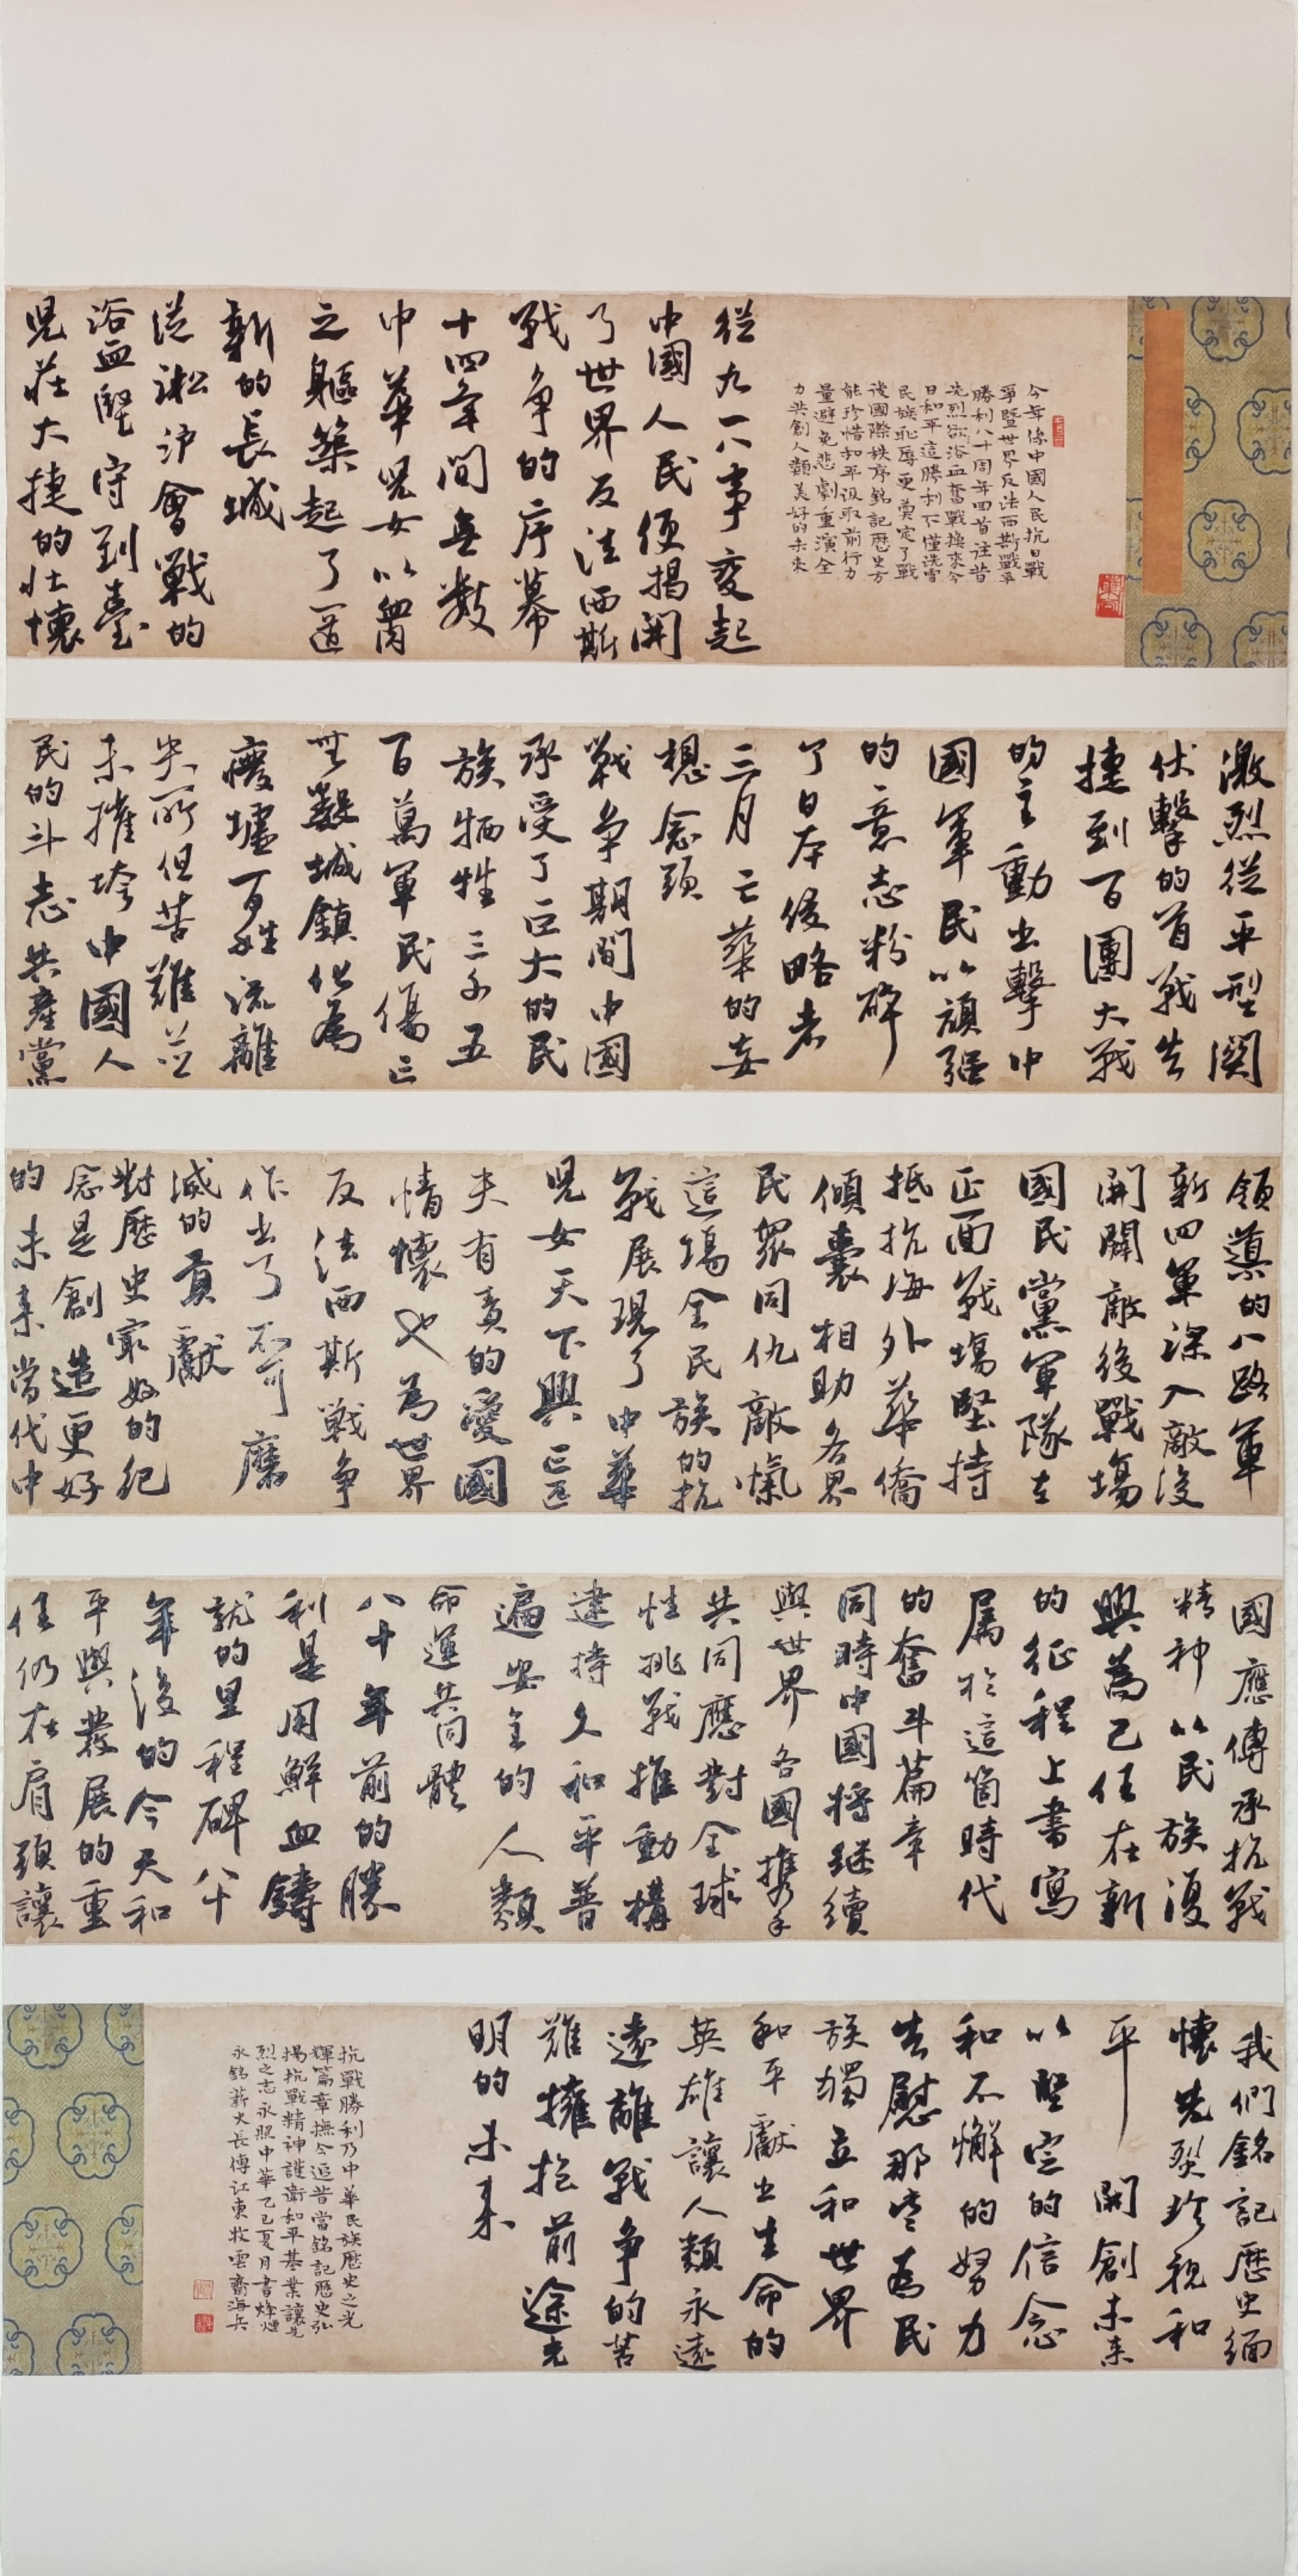 今年係中國人民抗日戰
爭暨世界反法西斯戰爭
勝利八十周年回首往昔
先烈欲浴血奮戰換來今
日和平這勝利不僅洗雪
民族恥辱更奠定了戰
後國際秩序銘記歷史方
能珍惜和平汲取前行力
量避免悲劇重演全
力共創人類美好的未來
從九一八事變起
中國人民便揭開
了世界反法西斯
戰争的序幕
十四年間無數
中華兒女以血肉
之軀築起了一道
新的長城
從淞沪會戰的
浴血堅守到臺
兒莊大捷的壯懷
激烈從平型関
伏擊的首戰告
捷到百團大戰
的主動出擊中
國軍民以頑强
的意志粉碎
了日本侵略者
三月亡華的妄
想念頭
戰争期間中國
承受了巨大的民
族牺牲三千五
百萬軍民傷亡
無數城鎮化為
廢墟百姓流離
失所但苦難並
未摧垮中國人
民的斗志共產黨
領導的八路軍
新四軍深入敵後
開闢敵後戰場
國民黨軍隊在
正面戰場堅持
抵抗海外華僑
傾囊相助各界
民眾同仇敵愾
這場全民族的抗
戰展現了中華
兒女天下興亡匹
夫有責的愛國
情懷也為世界
反法西斯戰争
作出了不可磨
滅的貢獻
對歷史最好的紀
念是創造更好
的未来當代中
國應傳承抗戰
精神以民族復
興為己任在新
的征程上書寫
屬於這箇時代
的奮斗篇章
同時中國將继續
與世界各國攜手
共同應對全球
性挑戰推動構
建持久和平普
遍安全的人類
命運共同體
八十年前的勝
利是用鮮血鑄
就的里程碑八十
年後的今天和
平與發展的重
任仍在肩頭讓
我們銘記歷史緬
懷先烈珍視和
平開創未来
以堅定的信念
和不懈的努力
告慰那些為民
族獨立和世界
和平獻出生命的
英雄讓人類永遠
遠離戰争的苦
難擁抱前途光
明的未来
抗戰勝利乃中華民族歷史之光
輝篇章撫今追昔當銘記歷史弘
揚抗戰精神護衛和平基業讓先
烈之志永照中華乙巳夏月書烽煙
永銘薪火長傳江東牧雲齋海兵